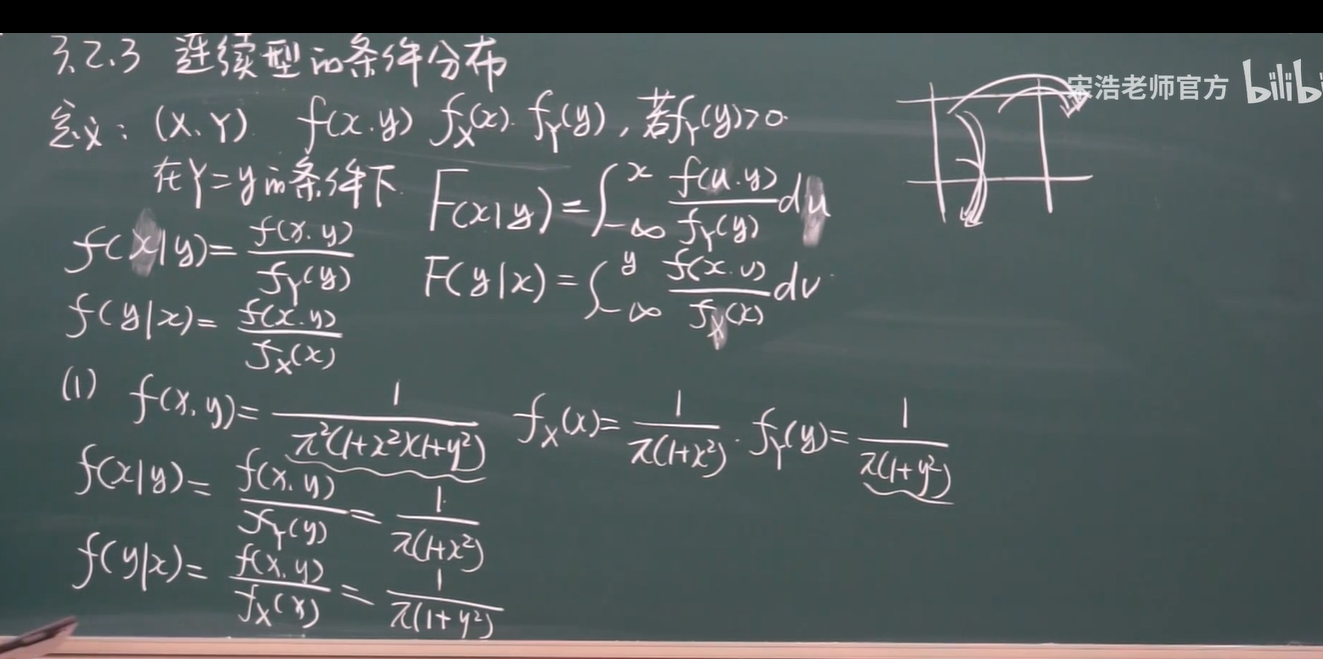 3.2.3 连续型的条件分布
宋浩老师官方 bilibi
定义: (X,Y) f(x,y) f_X(x). f_Y(y), 若f_Y(y)>0
在Y=y的条件下. F(x|y)=∫_{-∞}^{x} \frac{f(u,y)}{f_Y(y)}du
f(x|y)=\frac{f(x,y)}{f_Y(y)} F(y|x)=∫_{-∞}^{y} \frac{f(x,v)}{f_X(x)}dv
f(y|x)=\frac{f(x,y)}{f_X(x)}
(1) f(x,y)=\frac{1}{π²(1+x²)(1+y²)} f_X(x)=\frac{1}{π(1+x²)}. f_Y(y)=\frac{1}{π(1+y²)}
f(x|y)=\frac{f(x,y)}{f_Y(y)}=\frac{1}{π(1+x²)}
f(y|x)=\frac{f(x,y)}{f_X(x)}=\frac{1}{π(1+y²)}